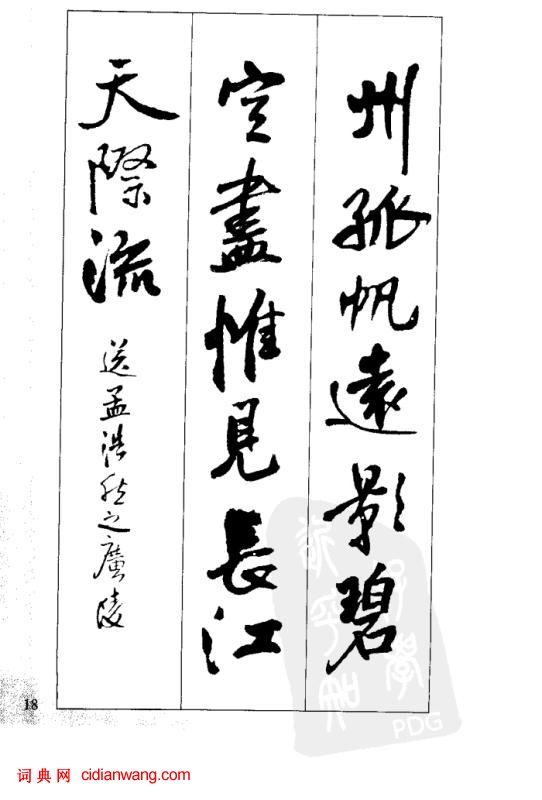 州孤帆遠影碧
空盡惟見長江
天際流
送孟浩然之廣陵
18
PDG
词典网 cidianwang.com